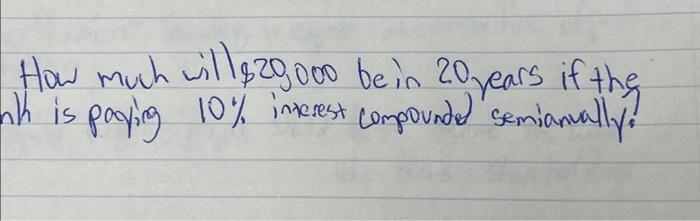 How much will $20,000 be in 20 years if the
nk is paying 10% interest compounded semianually?